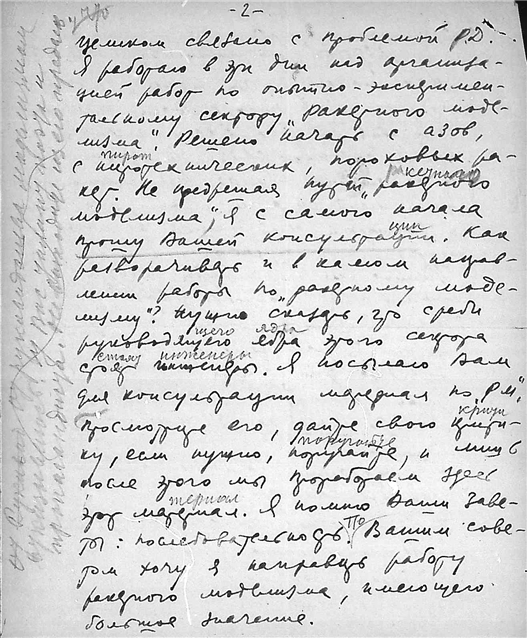 -2-
целиком связано с проблемой Р.Д. -
Я работаю в эти дни над организа-
цией работ по опытно-эксперимен-
тальному сектору "Ракетного моде-
лизма". Решено начать с азов,
пирот
с пиротехнических, пороховых ра-
кет. Не предрешая пути "ракетного
моделизма", я с самого начала
ции
прошу Вашей консультации. Как
разворачивать и в каком направ-
лении работы по "ракетному моде-
лизму"? Нужно сказать, что среди
щего ядра
руководящего ядра этого сектора
стоят инженеры
стоят инженеры. Я посылаю Вам
для консультации материал по "Р.М."
крити
Просмотрите его, дайте свою крити-
поругайте
ку, если нужно, поругайте, и лишь
после этого мы проработаем здесь
териал
этот материал. Я помню Ваши заве-
ты: последовательность. По Вашим сове-
там хочу я направить работу
ракетного моделизма, имеющего
большое значение.